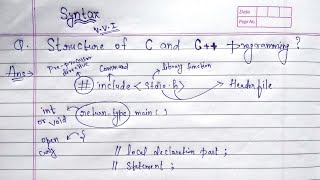 Syntax
V.V.I
Date
Page No
Q. Structure of C and C++ programming ?
Ans → Pre-processor directive Command library function
# include < Stdio.h > → Header file
int or void
return-type main ( )
open {
// local declaration part ;
// Statement ;